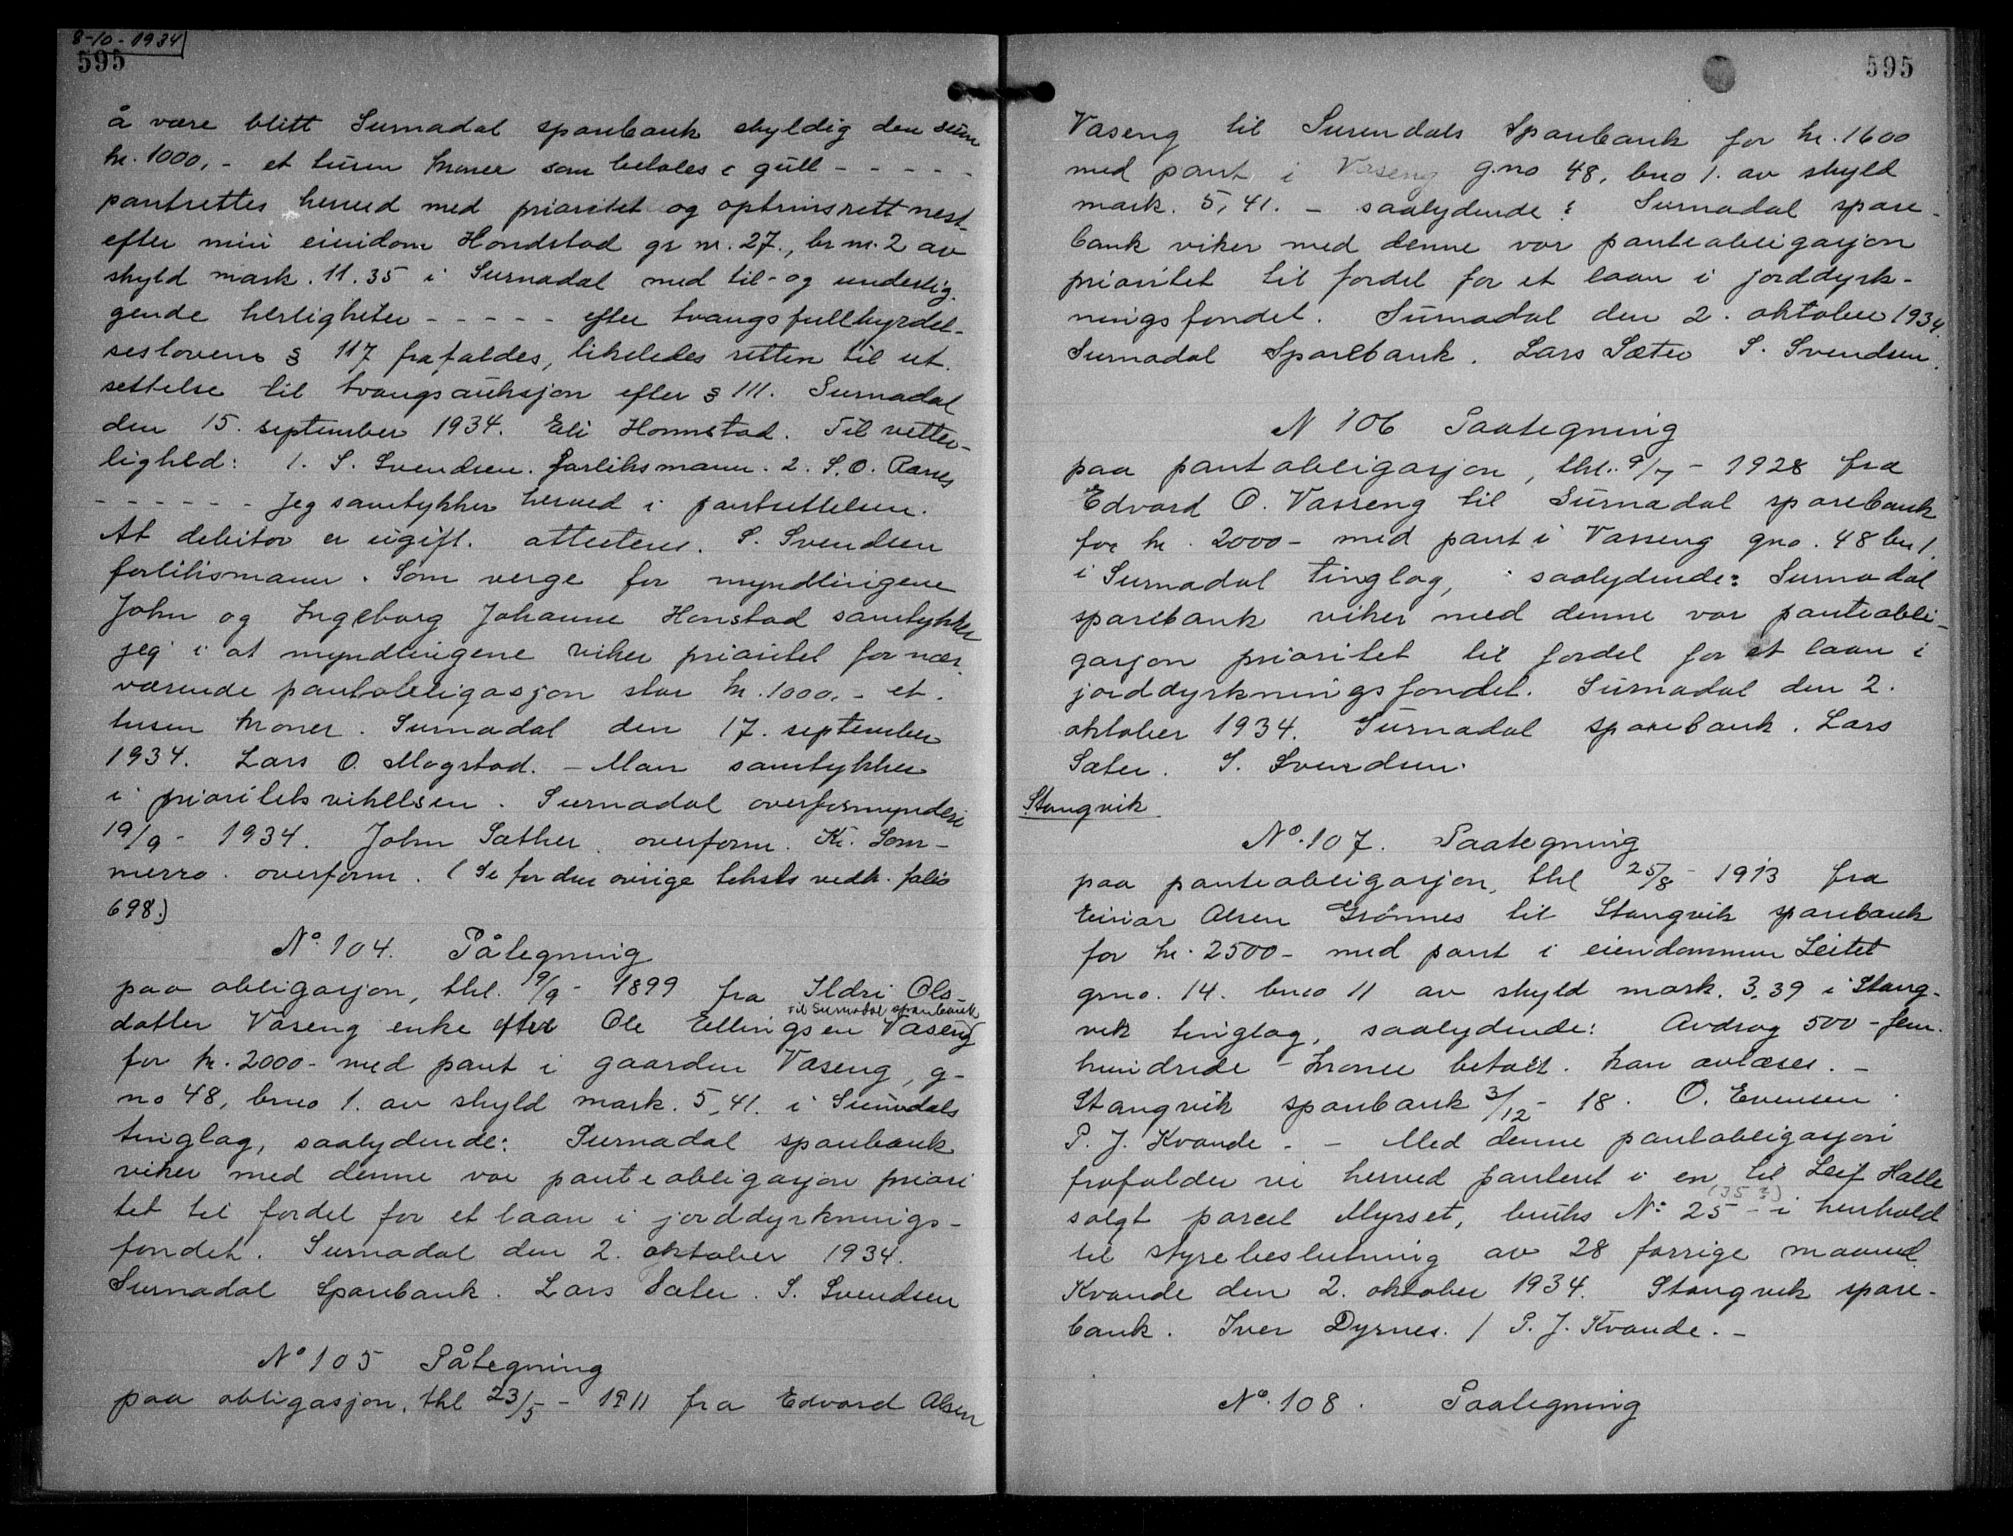 8-10-1934
595
å være blitt Surnadal sparebank skyldig den sum
kr. 1000,- et tusen kroner som betales i gull - - - - -
pantsettes herved med prioritet og optrinsrett nest
efter min eiendom Hondstad gr nr. 27., br nr. 2 av
skyld mark. 11.35 i Surnadal med til- og underlig-
gende herligheter - - - - - efter tvangsfullbyrdel-
seslovens § 117 frafaldes, likeledes retten til ut-
settelse til tvangsauksjon efter § 111. Surnadal
den 15. september 1934. Eli Honnstad. Til vitter-
lighed: 1. S. Svendsen. forliksmann. 2. S. O.
- - - - - - Jeg samtykker herved i pantsettelsen.
At debitor er ugift. attesteres. S. Svendsen
forliksmann. Som verge for myndlingene
John og Ingeborg Johanne Honstad samtykker
jeg i at myndlingene viker prioritet for nær-
værende pantobligasjon stor kr. 1000,- et-
tusen kroner. Surnadal den 17. september
1934. Lars O. Mogstad. - Man samtykker
i prioritetsvikelsen. Surnadal overformynderi
19/9 - 1934. John Sæther. overform. Kr. Som-
merro. overform. (Se for den øvrige teksts vedk. folio
698.)
No. 104. Påtegning
paa obligasjon, thl. 19/9 - 1899 fra Ildri Ols-
til Surnadal sparebank
datter Vaseng enke efter Ole Ellingsen Vaseng
for kr. 2000- med pant i gaarden Vaseng, g-
no 48, bruo 1. av skyld mark. 5,41. i Surndals
tinglag, saalydende: Surnadal sparebank
viker med denne vor panteobligasjon priori
tet til fordel for et laan i jorddyrknings-
fondet. Surnadal den 2. oktober 1934.
Surnadal Sparebank. Lars Sæter. S. Svendsen
No 105 Påtegning
paa obligasjon, thl 23/5 - 1911 fra Edvard Olsen
595
Vaseng til Surendals Sparebank for kr. 1600
med pant i Vaseng g.no 48, bno 1. av skyld
mark. 5,41. - saalydende: Surnadal spare-
bank viker med denne vor panteobligasjon
prioritet til fordel for et laan i jorddyrk-
ningsfondet. Surnadal den 2. oktober 1934.
Surnadal Sparebank. Lars Sæter S. Svendsen.
N 106 Paategning
paa pantobligasjon, thl. 9/7 - 1928 fra
Edvard O. Vasseng til Surnadal sparebank
for kr. 2000- med pant i Vasseng gno. 48 bn 1.
i Surnadal tinglag, saalydende: Surnadal
sparebank viker med denne vor panteobli-
gasjon prioritet til fordel for et laan i
jorddyrkningsfondet. Surnadal den 2.
oktober 1934. Surnadal sparebank. Lars
Sæter. S. Svendsen.
Stangvik
No. 107. Paategning
paa panteobligasjon, thl 25/8 - 1913 fra
Einar Olsen Grønnes til Stangvik sparebank
for kr. 2500- med pant i eiendommen Leitet
grno. 14. bruo 11 av skyld mark. 3.39 i Stang-
vik tinglag, saalydende: Avdrag 500 - fem-
hundrede - kroner betalt. kan avlæses. -
Stangvik sparebank 3/12 - 18. O. Evensen.
P. J. Kvande. - - Med denne pantobligasjon
frafalder vi herved panteret i en til Leif Halle
(35 ?)
solgt parcel Myrset, bruks No 25 - i henhold
til styrebeslutning av 28 forrige maaned.
Kvande den 2. oktober 1934. Stangvik spare-
bank. Iver Dyrnes. / P. J. Kvande. -
No. 108. Paategning